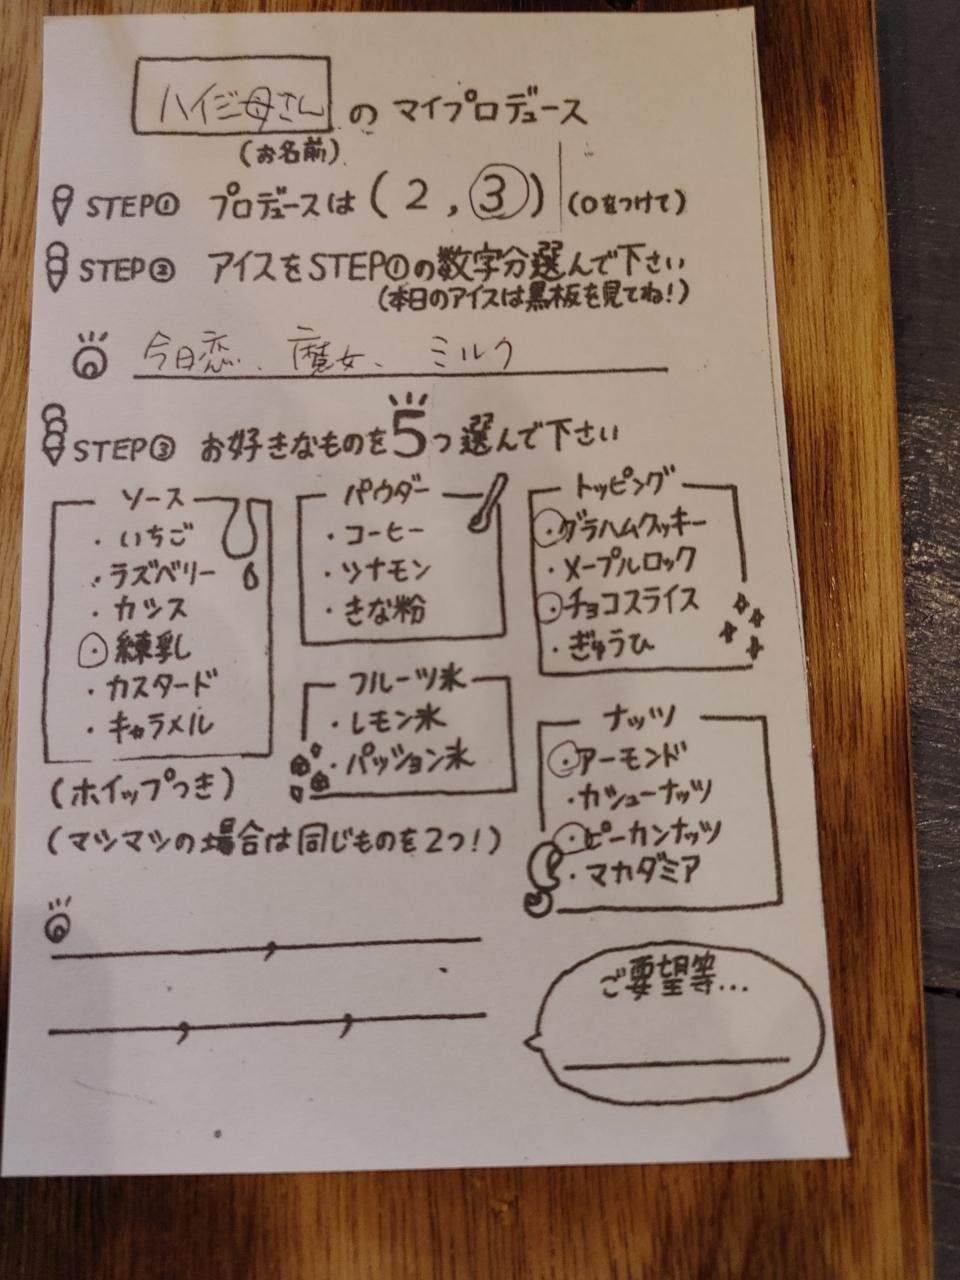 ハイジ母さん の マイプロデュース
(お名前)
STEP① プロデュースは(2,③)(○をつけて)
STEP② アイスをSTEP①の数字分選んで下さい
(本日のアイスは黒板を見てね!)
今日恋、魔女、ミルク
STEP③ お好きなものを5つ選んで下さい
ソース
・いちご
・ラズベリー
・カシス
・練乳
・カスタード
・キャラメル
(ホイップつき)
パウダー
・コーヒー
・シナモン
・きな粉
フルーツ氷
・レモン氷
・パッション氷
トッピング
・グラハムクッキー
・メープルロック
・チョコスライス
・ぎゅうひ
ナッツ
・アーモンド
・カシューナッツ
・ピーカンナッツ
・マカダミア
(マシマシの場合は同じものを2つ!)
ご要望等...